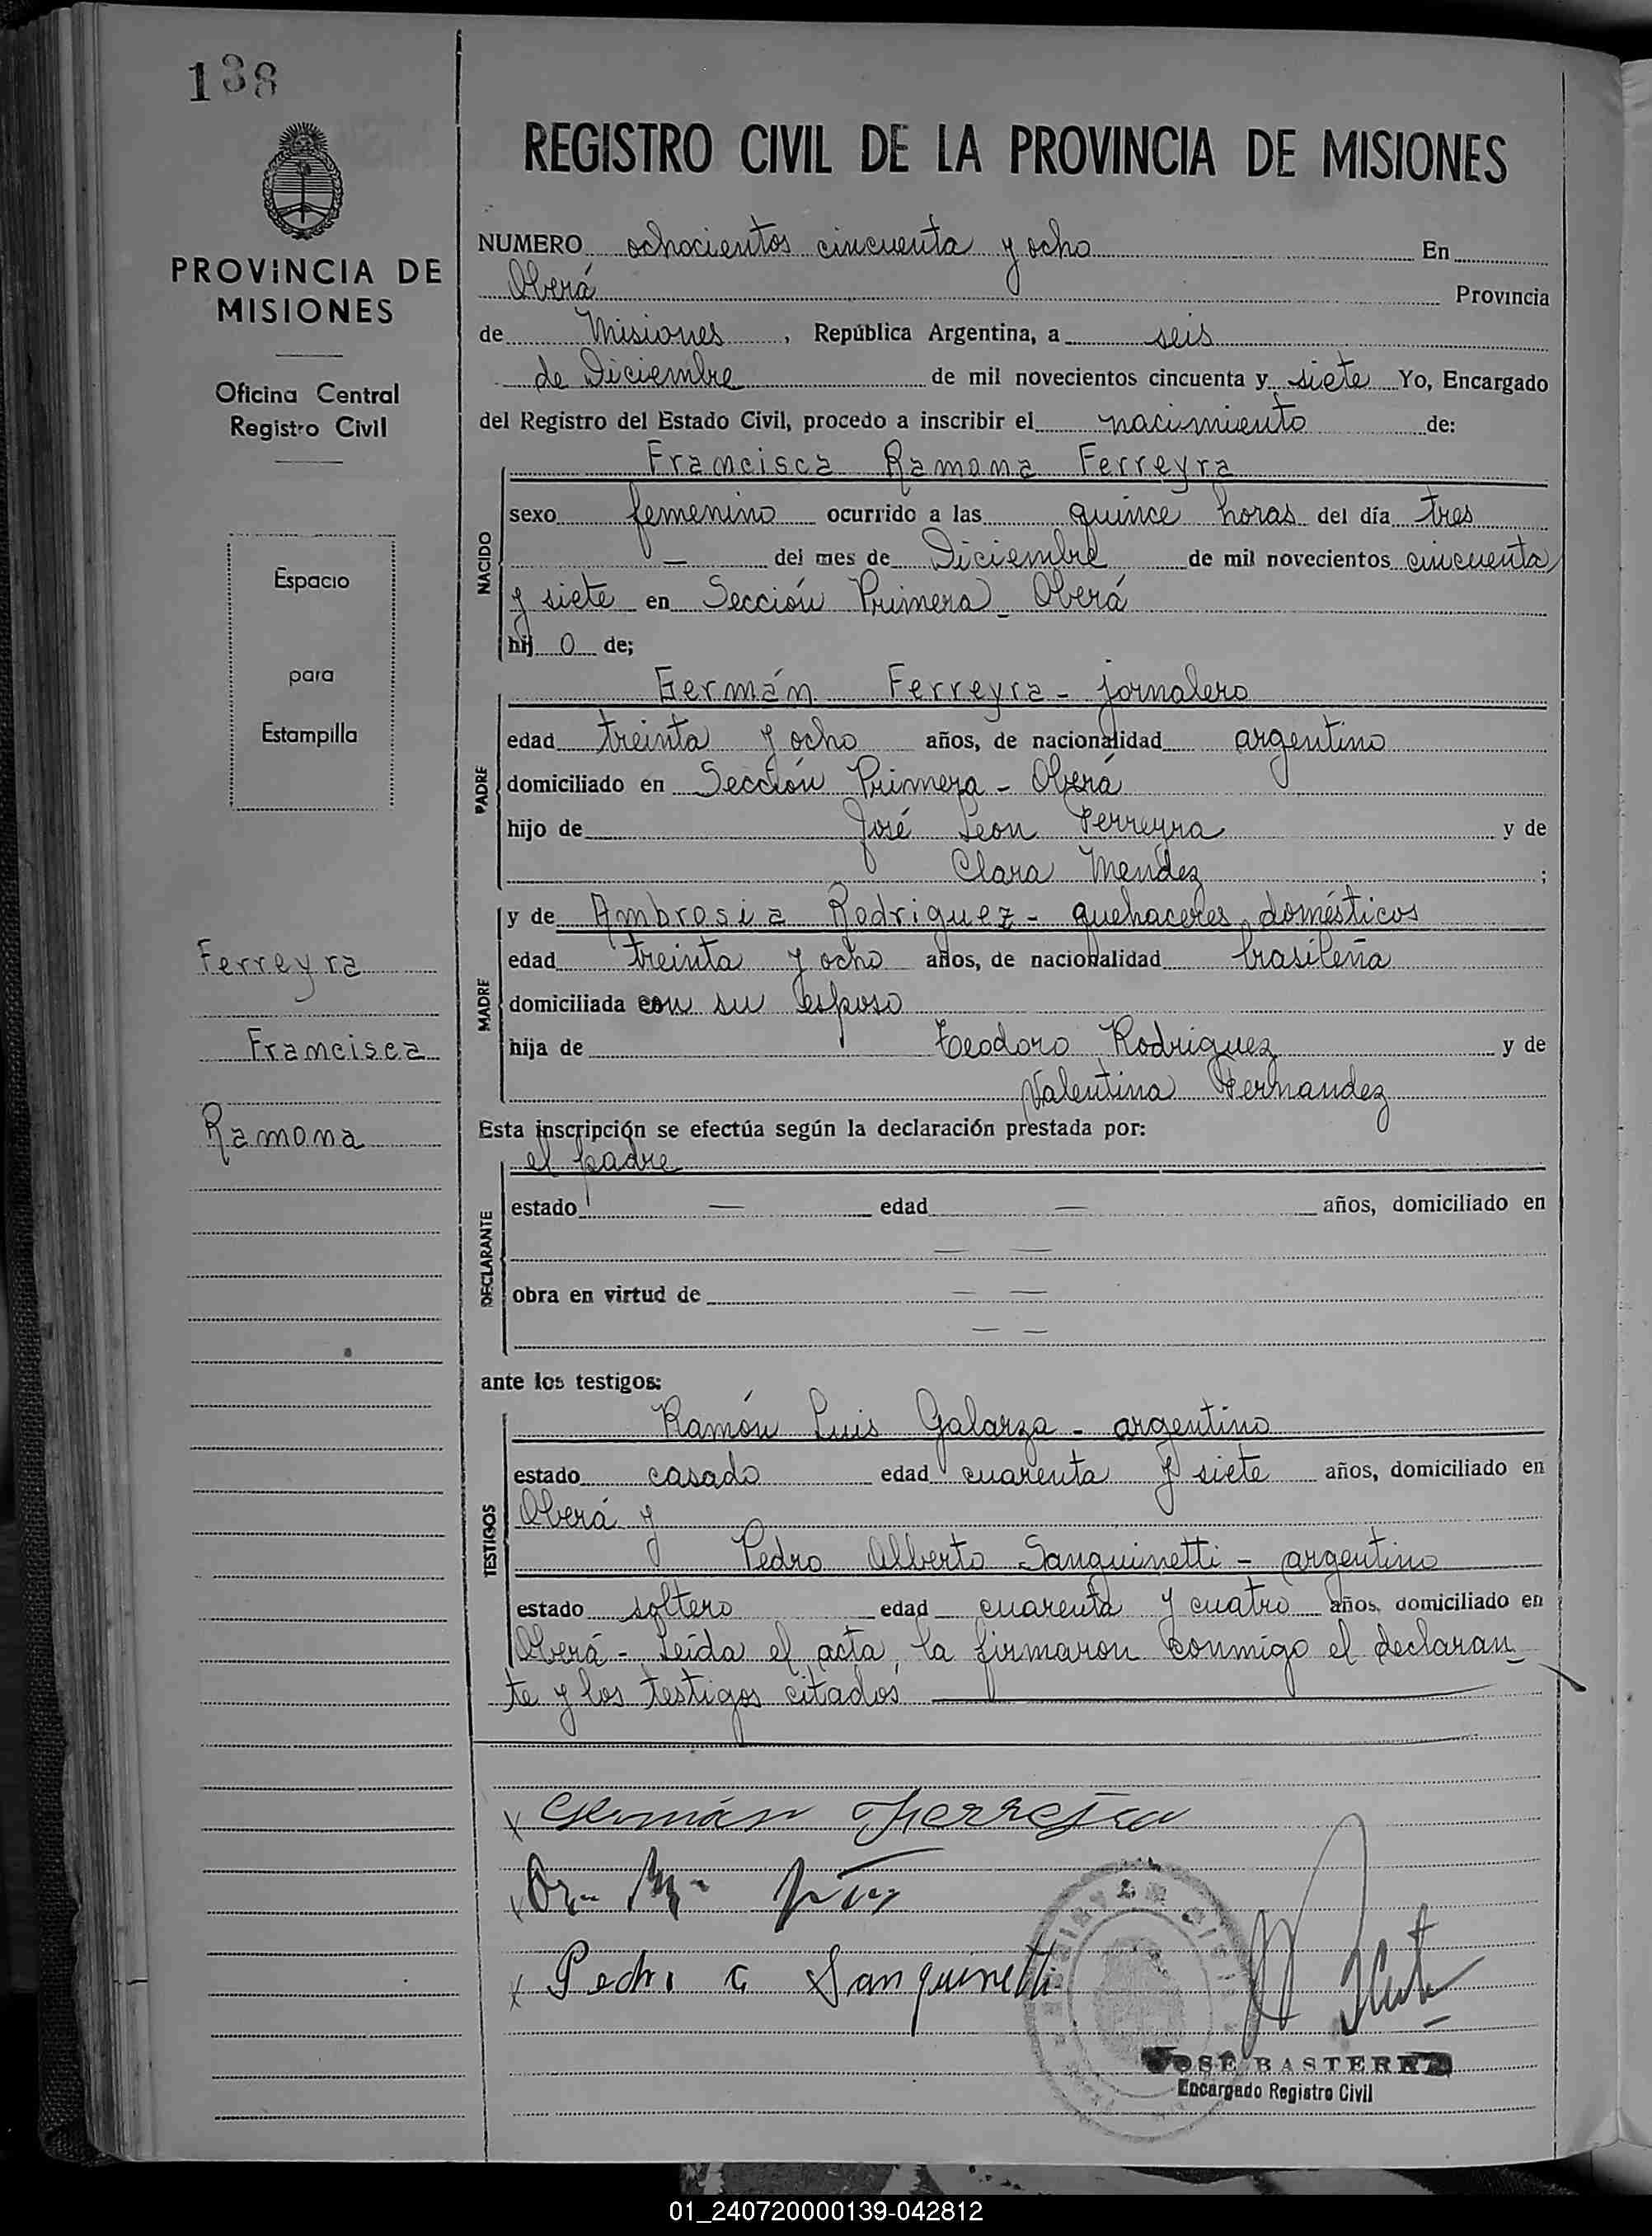 138
PROVINCIA DE
MISIONES
Oficina Central
Registro Civil
Espacio
para
Estampilla
Ferreyra
Francisca
Ramona
REGISTRO CIVIL DE LA PROVINCIA DE MISIONES
NUMERO ochocientos cincuenta y ocho En
Oberá Provincia
de Misiones, República Argentina, a seis
de Diciembre de mil novecientos cincuenta y siete Yo, Encargado
del Registro del Estado Civil, procedo a inscribir el nacimiento de:
Francisca Ramona Ferreyra
NACIDO
sexo femenino ocurrido a las quince horas del día tres
— del mes de Diciembre de mil novecientos cincuenta
y siete en Sección Primera - Oberá
hij o de;
Germán Ferreyra - jornalero
PADRE
edad treinta y ocho años, de nacionalidad argentino
domiciliado en Sección Primera - Oberá
hijo de José Leon Ferreyra y de
Clara Mendez ;
y de Ambrosia Rodriguez - quehaceres domésticos
MADRE
edad treinta y ocho años, de nacionalidad brasileña
domiciliada con su esposo
hija de Teodoro Rodriguez y de
Valentina Fernandez
Esta inscripción se efectúa según la declaración prestada por:
el padre
DECLARANTE
estado — edad — años, domiciliado en
— —
obra en virtud de — —
— —
ante los testigos:
Ramón Luis Galarza - argentino
TESTIGOS
estado casado edad cuarenta y siete años, domiciliado en
Oberá y
Pedro Alberto Sanguinetti - argentino
estado soltero edad cuarenta y cuatro años, domiciliado en
Oberá - Leída el acta, la firmaron conmigo el declaran
te y los testigos citados
x Germán Ferreyra
x Pedro A Sanguinetti
JOSE BASTERRA
Encargado Registro Civil
01_240720000139-042812